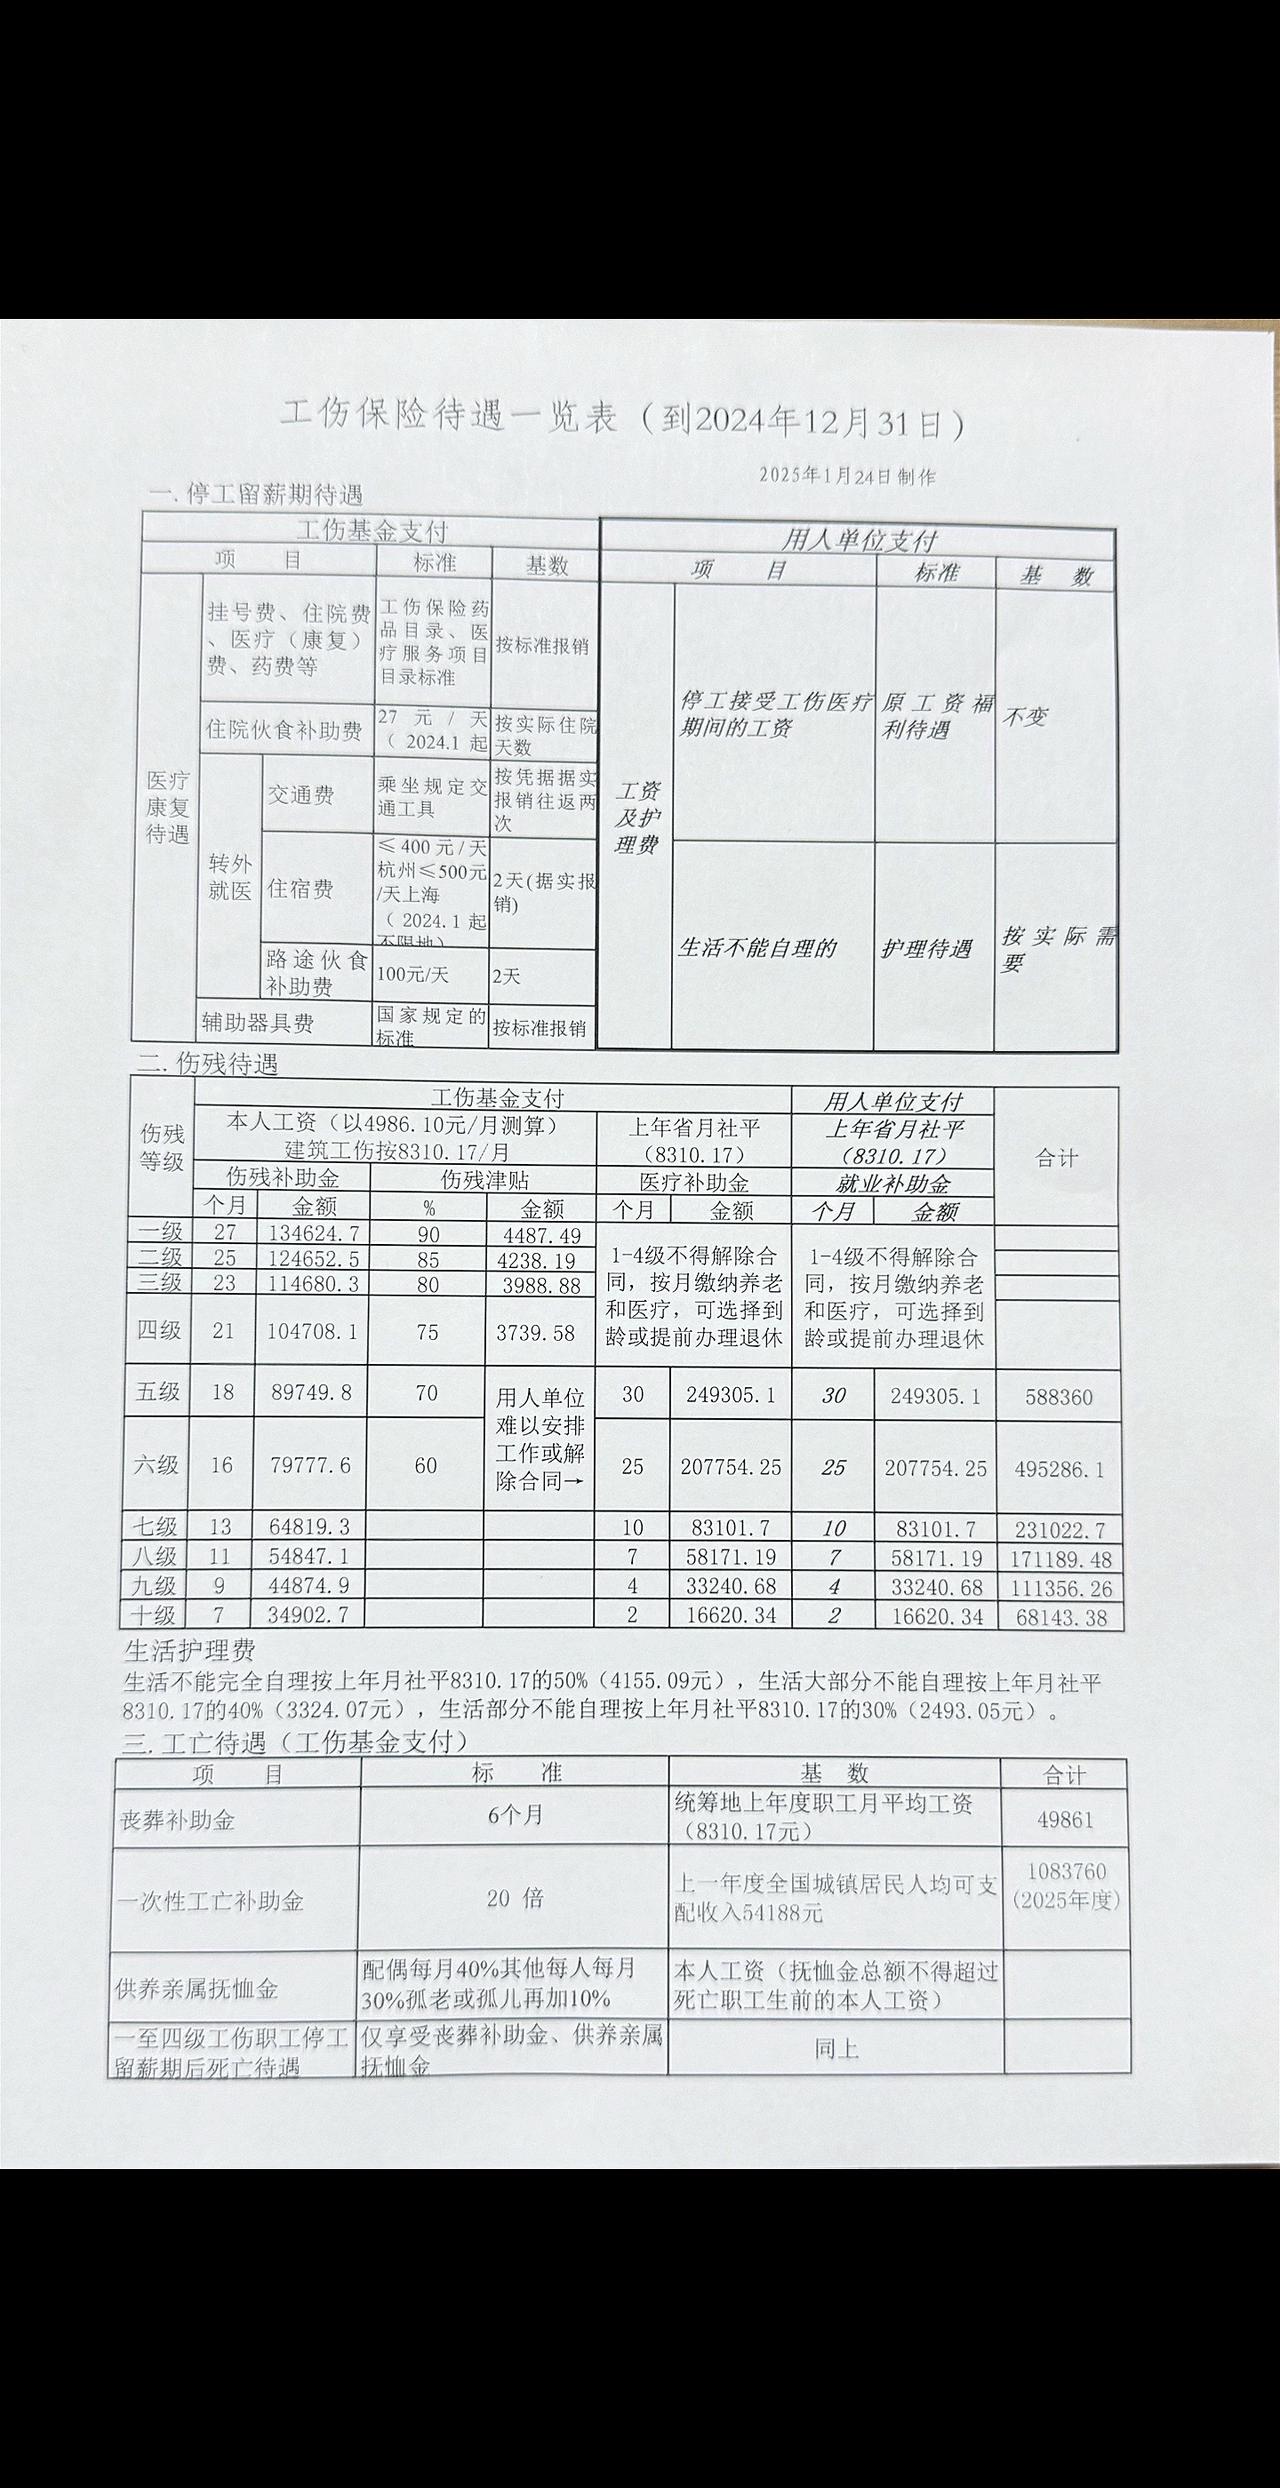 工伤保险待遇一览表（到2024年12月31日）
2025年1月24日制作
一.停工留薪期待遇
工伤基金支付
用人单位支付
项 目
标准
基数
项 目
标准
基 数
医疗
康复
待遇
挂号费、住院费
、医疗（康复）
费、药费等
工伤保险药
品目录、医
疗服务项目
目录标准
按标准报销
住院伙食补助费
27 元 / 天
（ 2024.1 起
按实际住院
天数
转外
就医
交通费
乘坐规定交
通工具
按凭据据实
报销往返两
次
住宿费
≤400元/天
杭州≤500元
/天上海
（ 2024.1 起
不限地）
2天(据实报
销)
路途伙食
补助费
100元/天
2天
辅助器具费
国家规定的
标准
按标准报销
工资
及护
理费
停工接受工伤医疗
期间的工资
原工资福
利待遇
不变
生活不能自理的
护理待遇
按实际需
要
二.伤残待遇
伤残
等级
工伤基金支付
用人单位支付
合计
本人工资（以4986.10元/月测算）
建筑工伤按8310.17/月
上年省月社平
（8310.17）
上年省月社平
（8310.17）
伤残补助金
伤残津贴
医疗补助金
就业补助金
个月 金额 % 金额 个月 金额 个月 金额
一级 27 134624.7 90 4487.49
二级 25 124652.5 85 4238.19
三级 23 114680.3 80 3988.88
四级 21 104708.1 75 3739.58
1-4级不得解除合
同，按月缴纳养老
和医疗，可选择到
龄或提前办理退休
1-4级不得解除合
同，按月缴纳养老
和医疗，可选择到
龄或提前办理退休
五级 18 89749.8 70
用人单位
难以安排
工作或解
除合同→
30 249305.1 30 249305.1 588360
六级 16 79777.6 60
25 207754.25 25 207754.25 495286.1
七级 13 64819.3 10 83101.7 10 83101.7 231022.7
八级 11 54847.1 7 58171.19 7 58171.19 171189.48
九级 9 44874.9 4 33240.68 4 33240.68 111356.26
十级 7 34902.7 2 16620.34 2 16620.34 68143.38
生活护理费
生活不能完全自理按上年月社平8310.17的50%（4155.09元），生活大部分不能自理按上年月社平
8310.17的40%（3324.07元），生活部分不能自理按上年月社平8310.17的30%（2493.05元）。
三.工亡待遇（工伤基金支付）
项 目
标 准
基 数
合计
丧葬补助金
6个月
统筹地上年度职工月平均工资
（8310.17元）
49861
一次性工亡补助金
20 倍
上一年度全国城镇居民人均可支
配收入54188元
1083760
(2025年度)
供养亲属抚恤金
配偶每月40%其他每人每月
30%孤老或孤儿再加10%
本人工资（抚恤金总额不得超过
死亡职工生前的本人工资）
一至四级工伤职工停工
留薪期后死亡待遇
仅享受丧葬补助金、供养亲属
抚恤金
同上